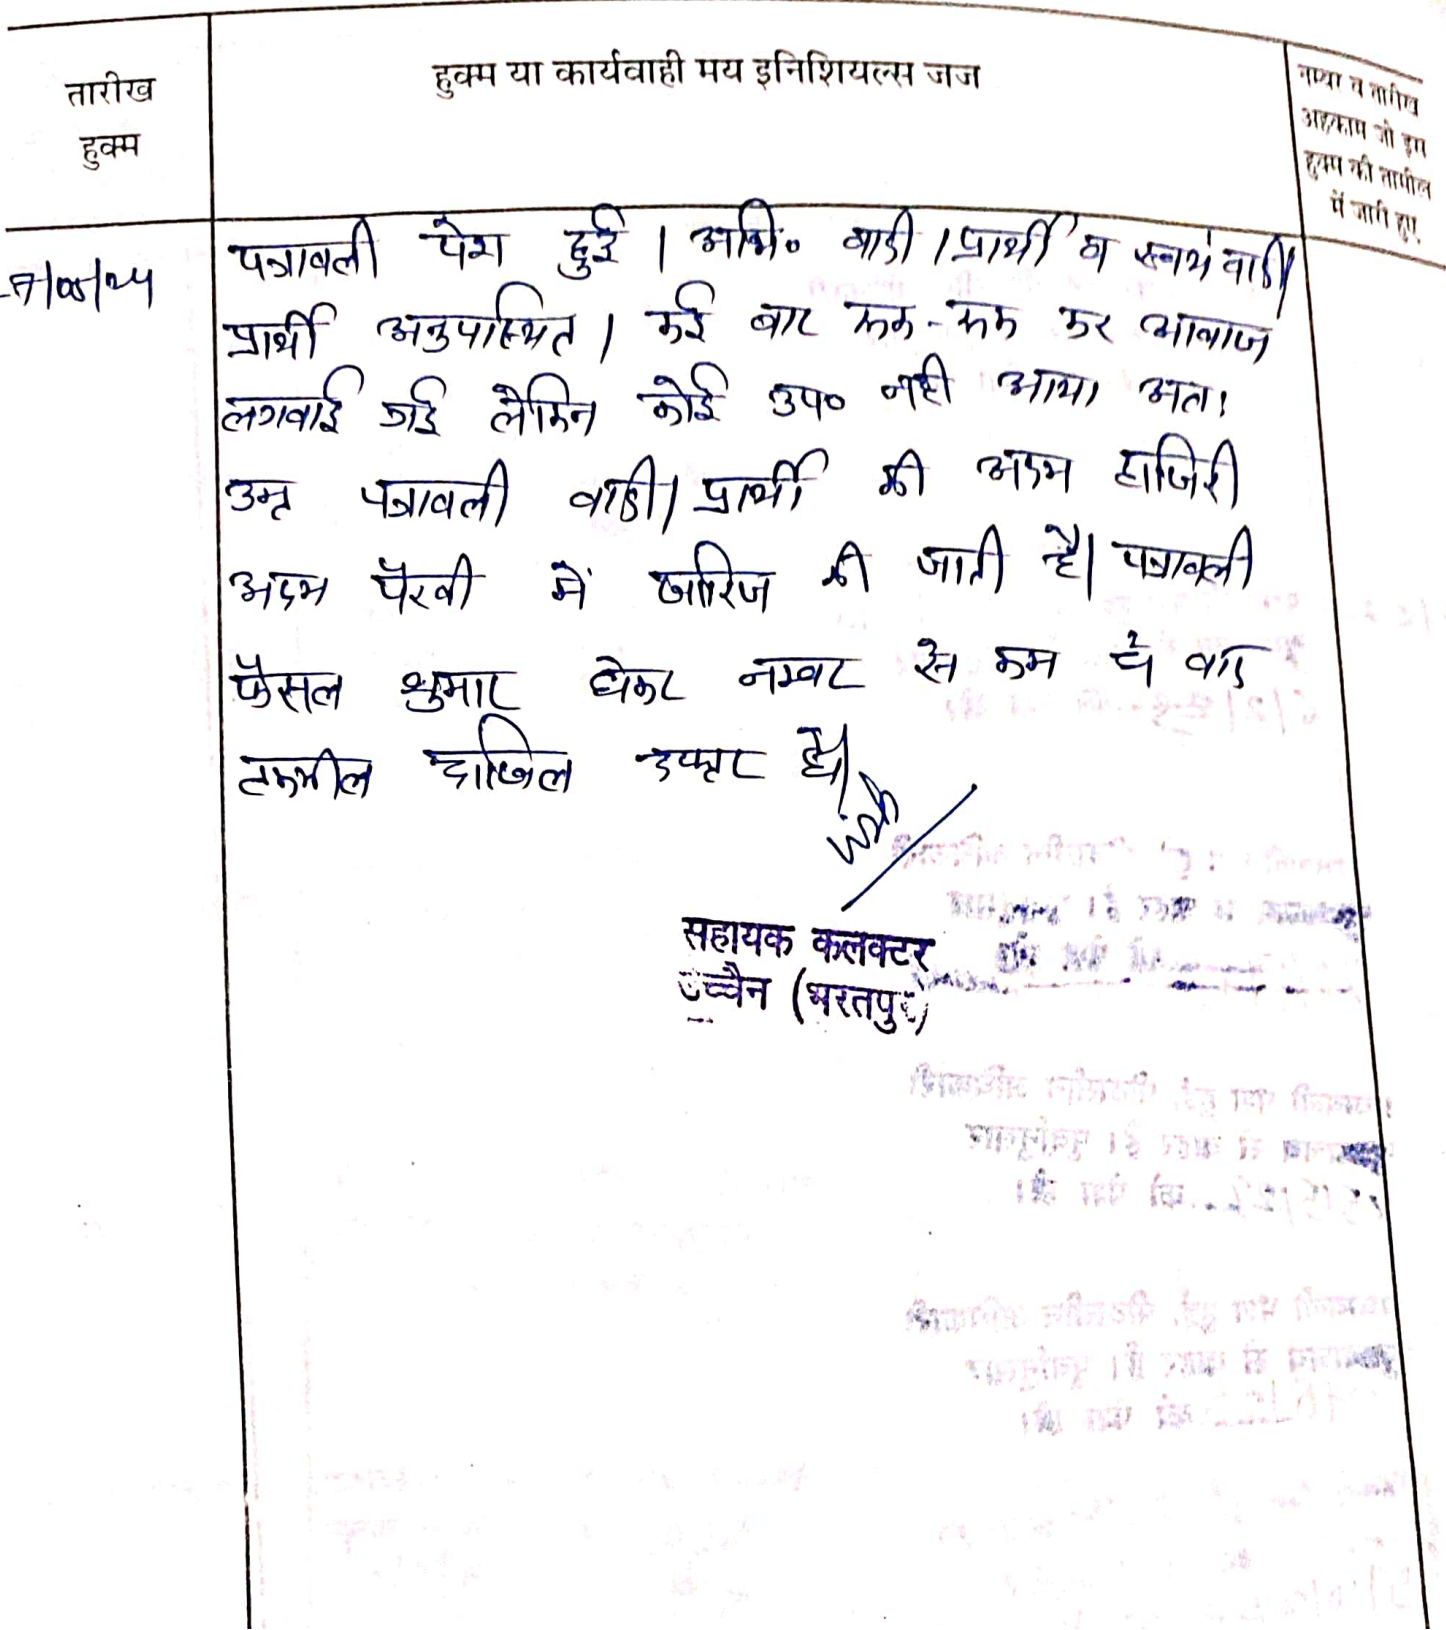 तारीख
हुक्म
हुक्म या कार्यवाही मय इनिशियल्स जज
नम्बर व तारीख
अहकाम जो इस
हुक्म की तामील
में जारी हुए
पत्रावली पेश हुई । अभि० वादी । प्रार्थी व स्वयं वादी/
प्रार्थी अनुपस्थित । कई बार रूक-रूक कर आवाज
लगवाई गई लेकिन कोई उप० नही आया अतः
उक्त पत्रावली वादी/प्रार्थी की अदम हाजिरी
अदम पैरवी में खारिज की जाती है। पत्रावली
फैसल शुमार होकर नम्बर से कम हो वाद
तकमील दाखिल दफ्तर हो।
सहायक कलक्टर
उच्चैन (भरतपुर)